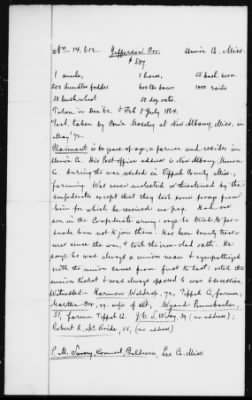 No. 14,612. Jefferson Cox. Union Co. Miss.
$587
1 mule, 1 horse, 25 bush corn.
200 bundles fodder 600 lbs bacon 1400 rails
33 bush wheat 30 doz oats.
Taken in Dec '62 & Feb & July 1864.
Test. taken by Com'r Moseley at New Albany, Miss. in
May '72.
Claimant is 60 years of age, a farmer and resides in
Union Co. His Post office address is New Albany, Union
Co. During the war resided in Tippah County Miss;
farming. Was never molested or threatened by the
confederates except that they took some forage from
him for which he received no pay. Had one
son in the Confederate army; says he tried to per-
suade him not to join them. Has been County treas-
urer since the war, & took the iron-clad oath. He
says he was always a union man & sympathized
with the union cause from first to last; voted the
union ticket & was always opposed to secession.
Witnesses:- Harmon 72, Tippah Co, farmer;
Martha Cox, 49, wife of clt,
55, farmer Tippah Co. 39 (no address);
Robert L. McBride, 55, (no address)
P. M. Savery, Counsel, Baldwin, Lee Co. Miss.